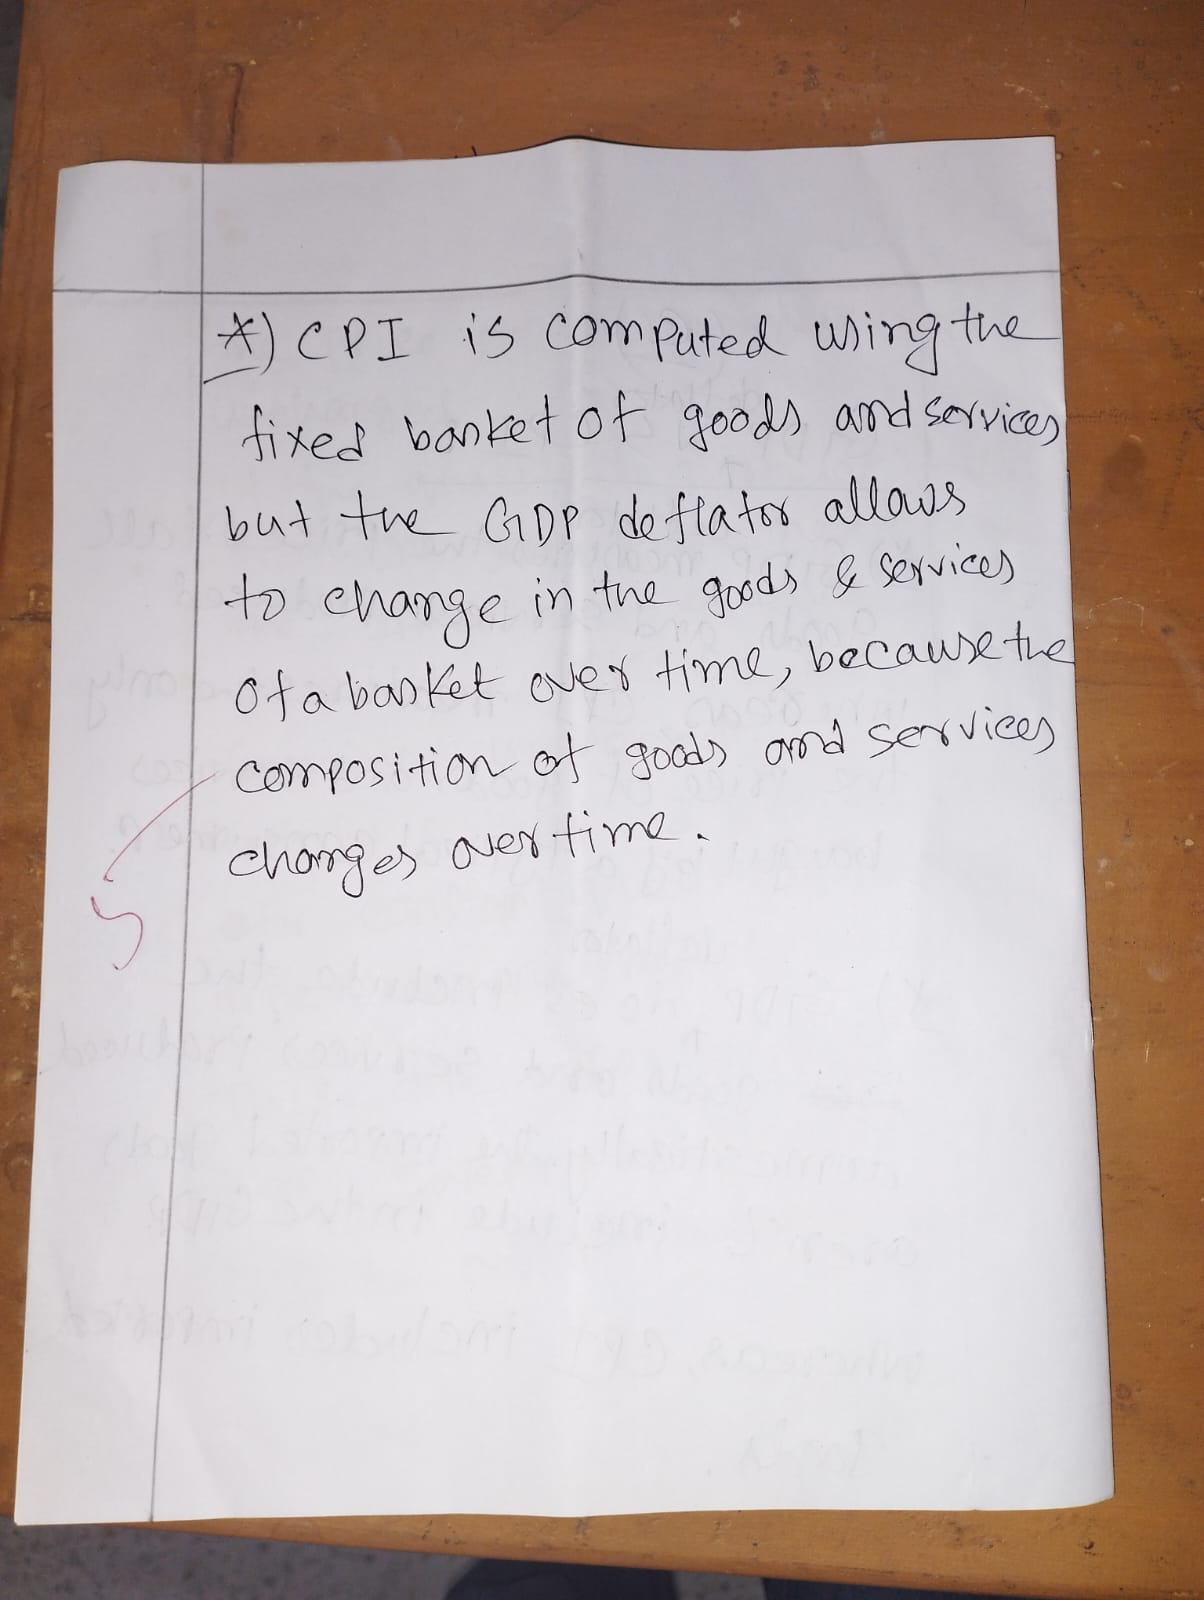 *) CPI is computed using the
fixed basket of goods and services
but the GDP deflator allows
to change in the goods & services
of a basket over time, because the
composition of goods and services
changes over time.
5